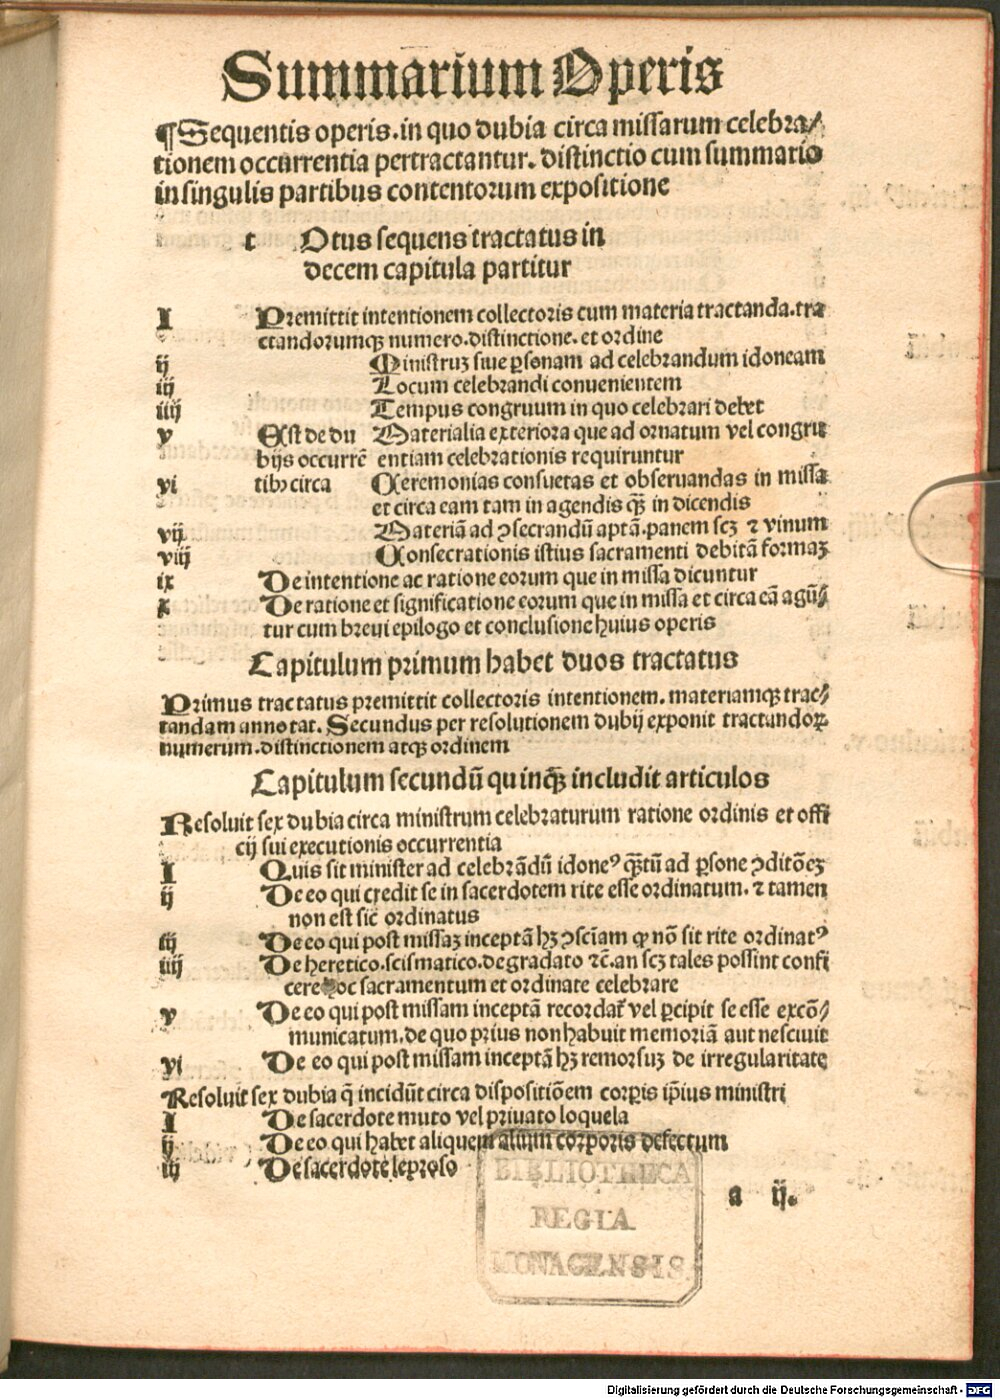 Summarium Operis
¶Sequentis operis.in quo dubia circa missarum celebra/
tionem occurrentia pertractantur. distinctio cum summario
in singulis partibus contentorum expositione
t Otus sequens tractatus in
decem capitula partitur
I Premittit intentionem collectoris cum materia tractanda.tra
ctandorumqꝫ numero.distinctione. et ordine
ij Ministruꝫ siue ꝑsonam ad celebrandum idoneam
iij Locum celebrandi conuenientem
iiij Tempus congruum in quo celebrari debet
v Est de du Materialia exteriora que ad ornatum vel congru
bijs occurrē entiam celebrationis requiruntur
vi tibꝫ circa Ceremonias consuetas et obseruandas in missa
et circa eam tam in agendis qꝫ̄ in dicendis
vij Materiā ad ꝯsecrandū aptā.panem scꝫ ⁊ vinum
viij Consecrationis istius sacramenti debitā formaꝫ
ix De intentione ac ratione eorum que in missa dicuntur
x De ratione et significatione eorum que in missa et circa eā agūn/
tur cum breui epilogo et conclusione huius operis
Capitulum primum habet duos tractatus
Primus tractatus premittit collectoris intentionem. materiamqꝫ trac/
tandam annotat. Secundus per resolutionem dubij exponit tractandoꝝ
numerum.distinctionem atqꝫ ordinem
Capitulum secundū quinqꝫ̄ includit articulos
Resoluit sex dubia circa ministrum celebraturum ratione ordinis et offi
cij sui executionis occurrentia
I Quis sit minister ad celebrādū idoneꝰ qꝫ̄tū ad ꝑsone ꝯditōeꝫ
ij De eo qui credit se in sacerdotem rite esse ordinatum. ⁊ tamen
non est sic ordinatus
iij De eo qui post missaꝫ inceptā hꝫ ꝯsciam ꝙ nō sit rite ordinatꝰ
iiij De heretico.scismatico.degradato ⁊c̄.an scꝫ tales possint confi
cere hoc sacramentum et ordinate celebrare
v De eo qui post missam inceptā recordat̄ vel ꝑcipit se esse excō/
municatum.de quo prius non habuit memoriā aut nesciuit
vi De eo qui post missam inceptā hꝫ remorsuꝫ de irregularitate
Resoluit sex dubia q̄ incidūt circa dispositiōem corꝑis ip̄ius ministri
I De sacerdote muto vel priuato loquela
ij De eo qui habet aliquem alium corporis defectum
iij De sacerdote leproso
a ij.
BIBLIOTHECA
REGIA
MONACENSIS
Digitalisierung gefördert durch die Deutsche Forschungsgemeinschaft - DFG